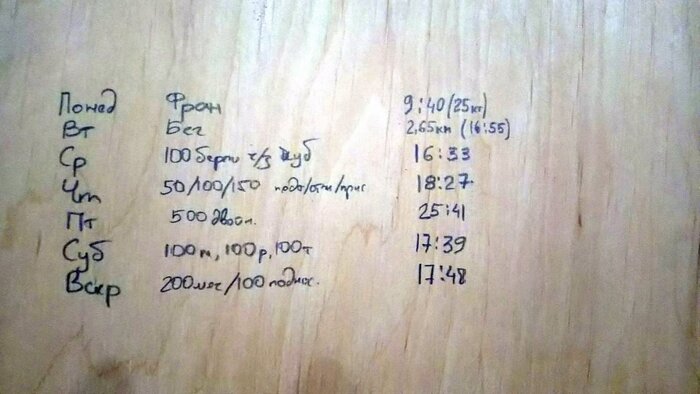 Понед Фран 9:40 (25кг)
Вт Бег 2,65км (16:55)
Ср 100 берпи ч/з куб 16:33
Чт 50/100/150 подт/отж/прис 18:27
Пт 500 двойн. 25:41
Суб 100м, 100р, 100т 17:39
Вскр 200мяч/100 поднос. 17:48